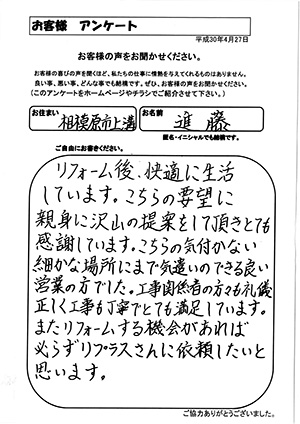 お客様 アンケート
平成30年4月27日
お客様の声をお聞かせください。
お客様の喜びの声を聞くほど、私たちの仕事に情熱を与えてくれるものはありません。
良い事、悪い事、どんな事でも結構です。ぜひ、お客様の声をお聞かせください。
(このアンケートをホームページやチラシでご紹介させて下さい。)
お住まい 相模原市上溝 お名前 進藤
匿名・イニシャルでも結構です。
ご自由にお書きください。
リフォーム後、快適に生活
しています。こちらの要望に
親身に沢山の提案をして頂きとても
感謝しています。こちらの気付かない
細かな場所にまで気遣いのできる良い
営業の方でした。工事関係者の方々も礼儀
正しく工事も丁寧でとても満足しています。
またリフォームする機会があれば
必らずリプラスさんに依頼したいと
思います。
ご協力ありがとうございました。